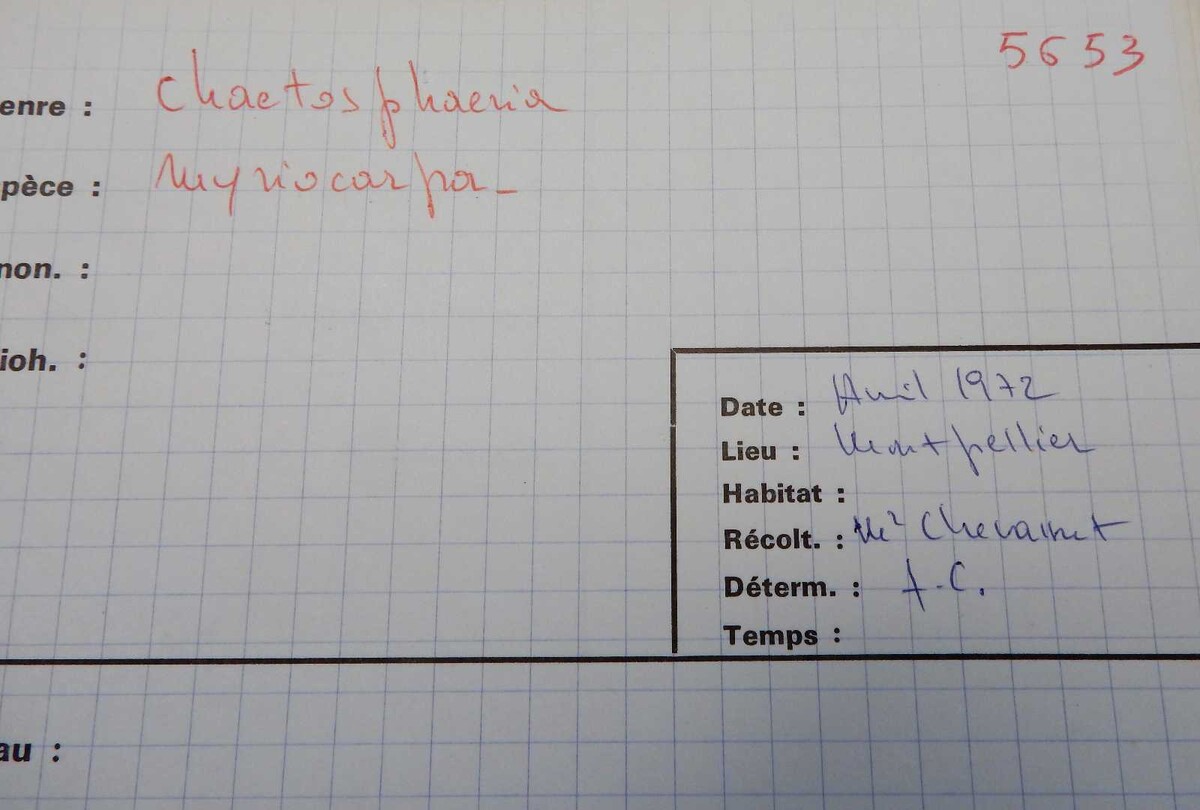 5653
enre : Chaetosphaeria
pèce : myriocarpa -
non. :
ioh. :
Date : Avril 1972
Lieu : Montpellier
Habitat :
Récolt. : Mr
Déterm. : A.C.
Temps :
au :